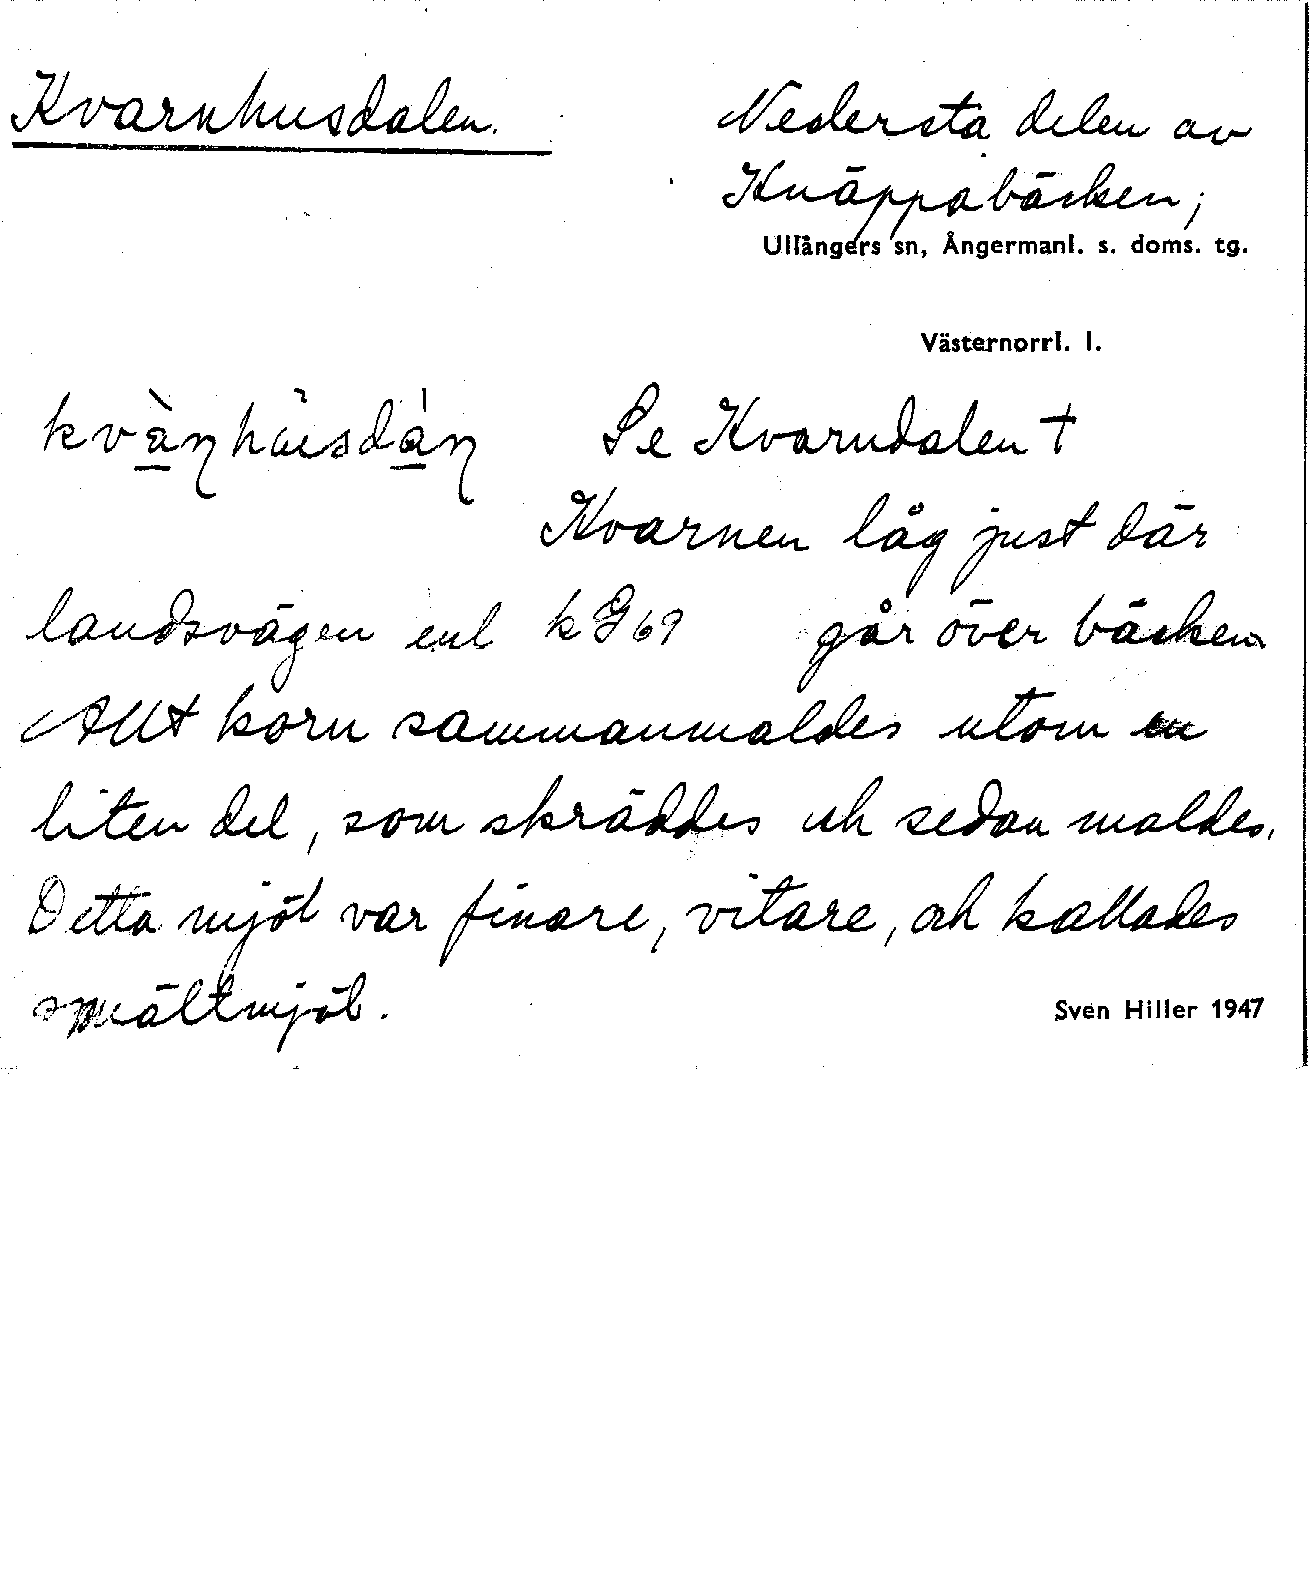 Kvarnhusdalen.
Nedersta delen av
Knäppabäcken;
Ullångers sn, Ångermanl. s. doms. tg.
Västernorrl. l.
Se Kvarndalen †
Kvarnen låg just där
landsvägen enl k G 69 går över bäcken
Allt korn sammanmaldes utom en
liten del, som skräddes och sedan maldes.
Detta mjöl var finare, vitare, och kallades
Sven Hiller 1947